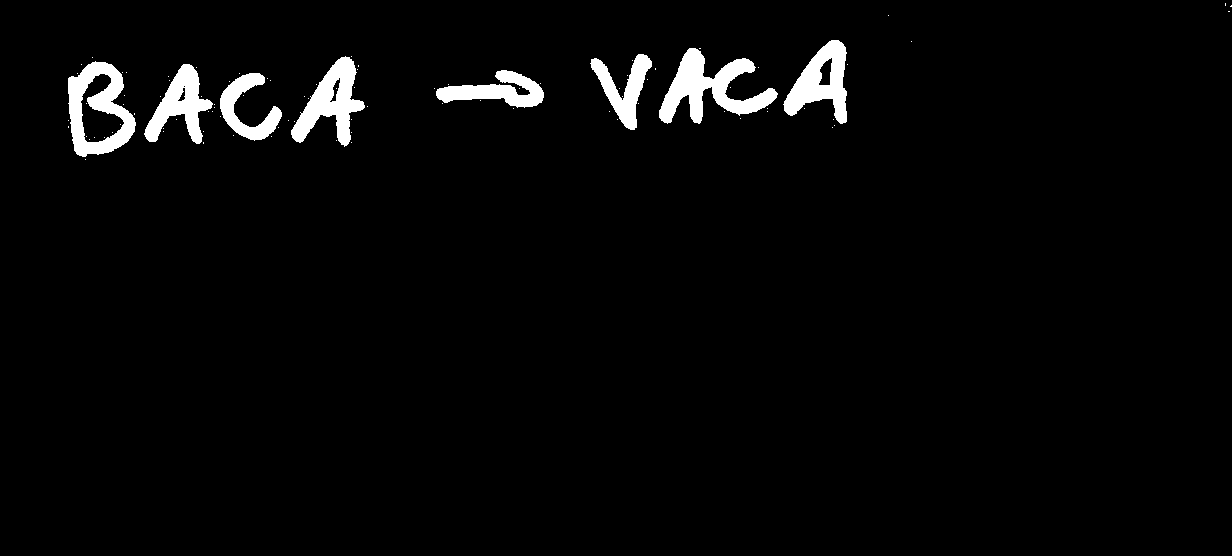 BACA → VACA